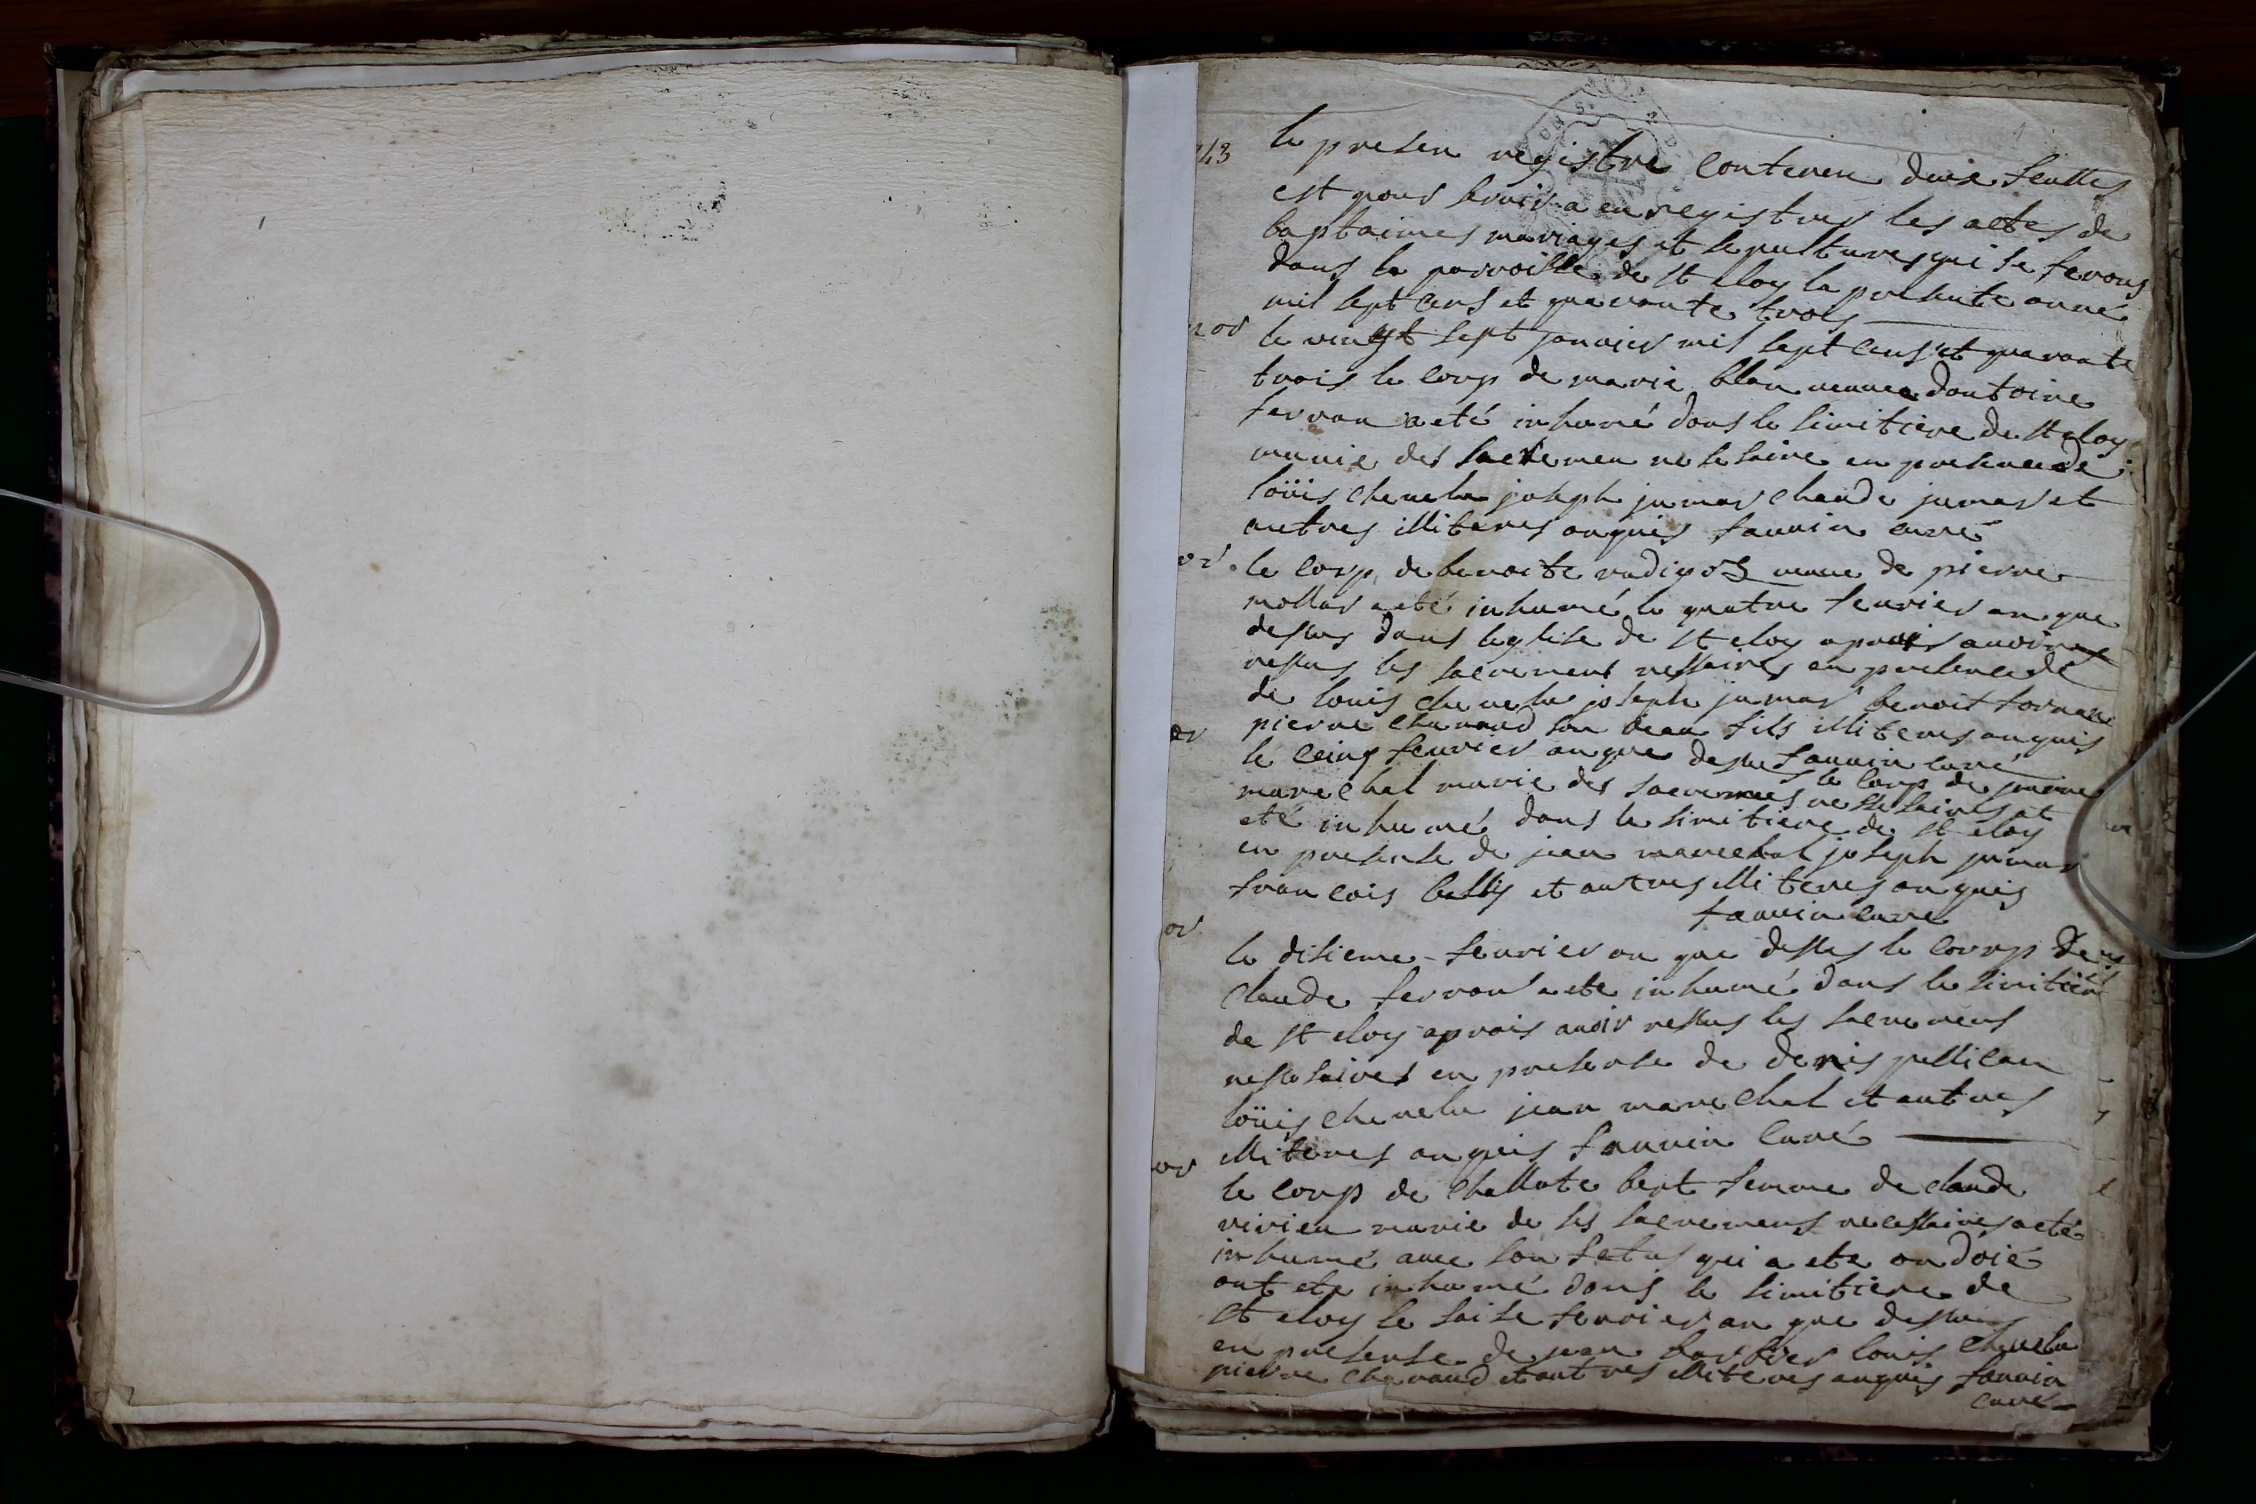 le presen registre contenen duise feulles
est pour servir a enregistrer les actes de
baptaimes mariages et sepulture qui se ferons
dans la parroisse de st eloy la presente anné
mil sept cens et quarante trois
le vingt sept janvier mil sept cens et quarante
trois le corp de marie blan veuve dontoine
ferran a eté inhumé dans le simitiere de st eloy
munie des sacremen nessesaire en presence de
loüis chevelu joseph jumar claude jumar et
autres illiteres enquis fauvin curé
le corp de benoite radigoz veuve de pierre
mollar a eté inhumé le quatre feuvrier an que
dessus dans leglise de st eloy aprais avoir
ressus les sacremens nessaires en presence de
de louis chevelu joseph jumar benoit
pierre chanaud son beau fils illiteres enquis
fauvin curé
le cinq feuvrier an que dessus le corp de pierre
marechal munie des sacremens nessesaires at
eté inhumé dans le simitiere de st eloy
en presense de jean marechal joseph jumar
francois belly et autres illiteres enquis
fauvin curé
le disieme feuvrier an que dessus le corp de
claude ferran a ete inhumé dans le simitiere
de st eloy aprais avoir ressus les sacremens
nessesaires en presense de denis pellican
loüis chevelu jean marechal et autres
illiteres enquis fauvin curé
le corp de challote bert femme de claude
vivien munie de ses sacremens necessaires a eté
inhumé avec son fetus qui a ete ondoié
ont ete inhumé dans le simitiere de
st eloy le saise fevrier an que dessus
en presense de jean barbier louis chevelu
pierre chanaud et autres illiteres enquis fauvin
curé